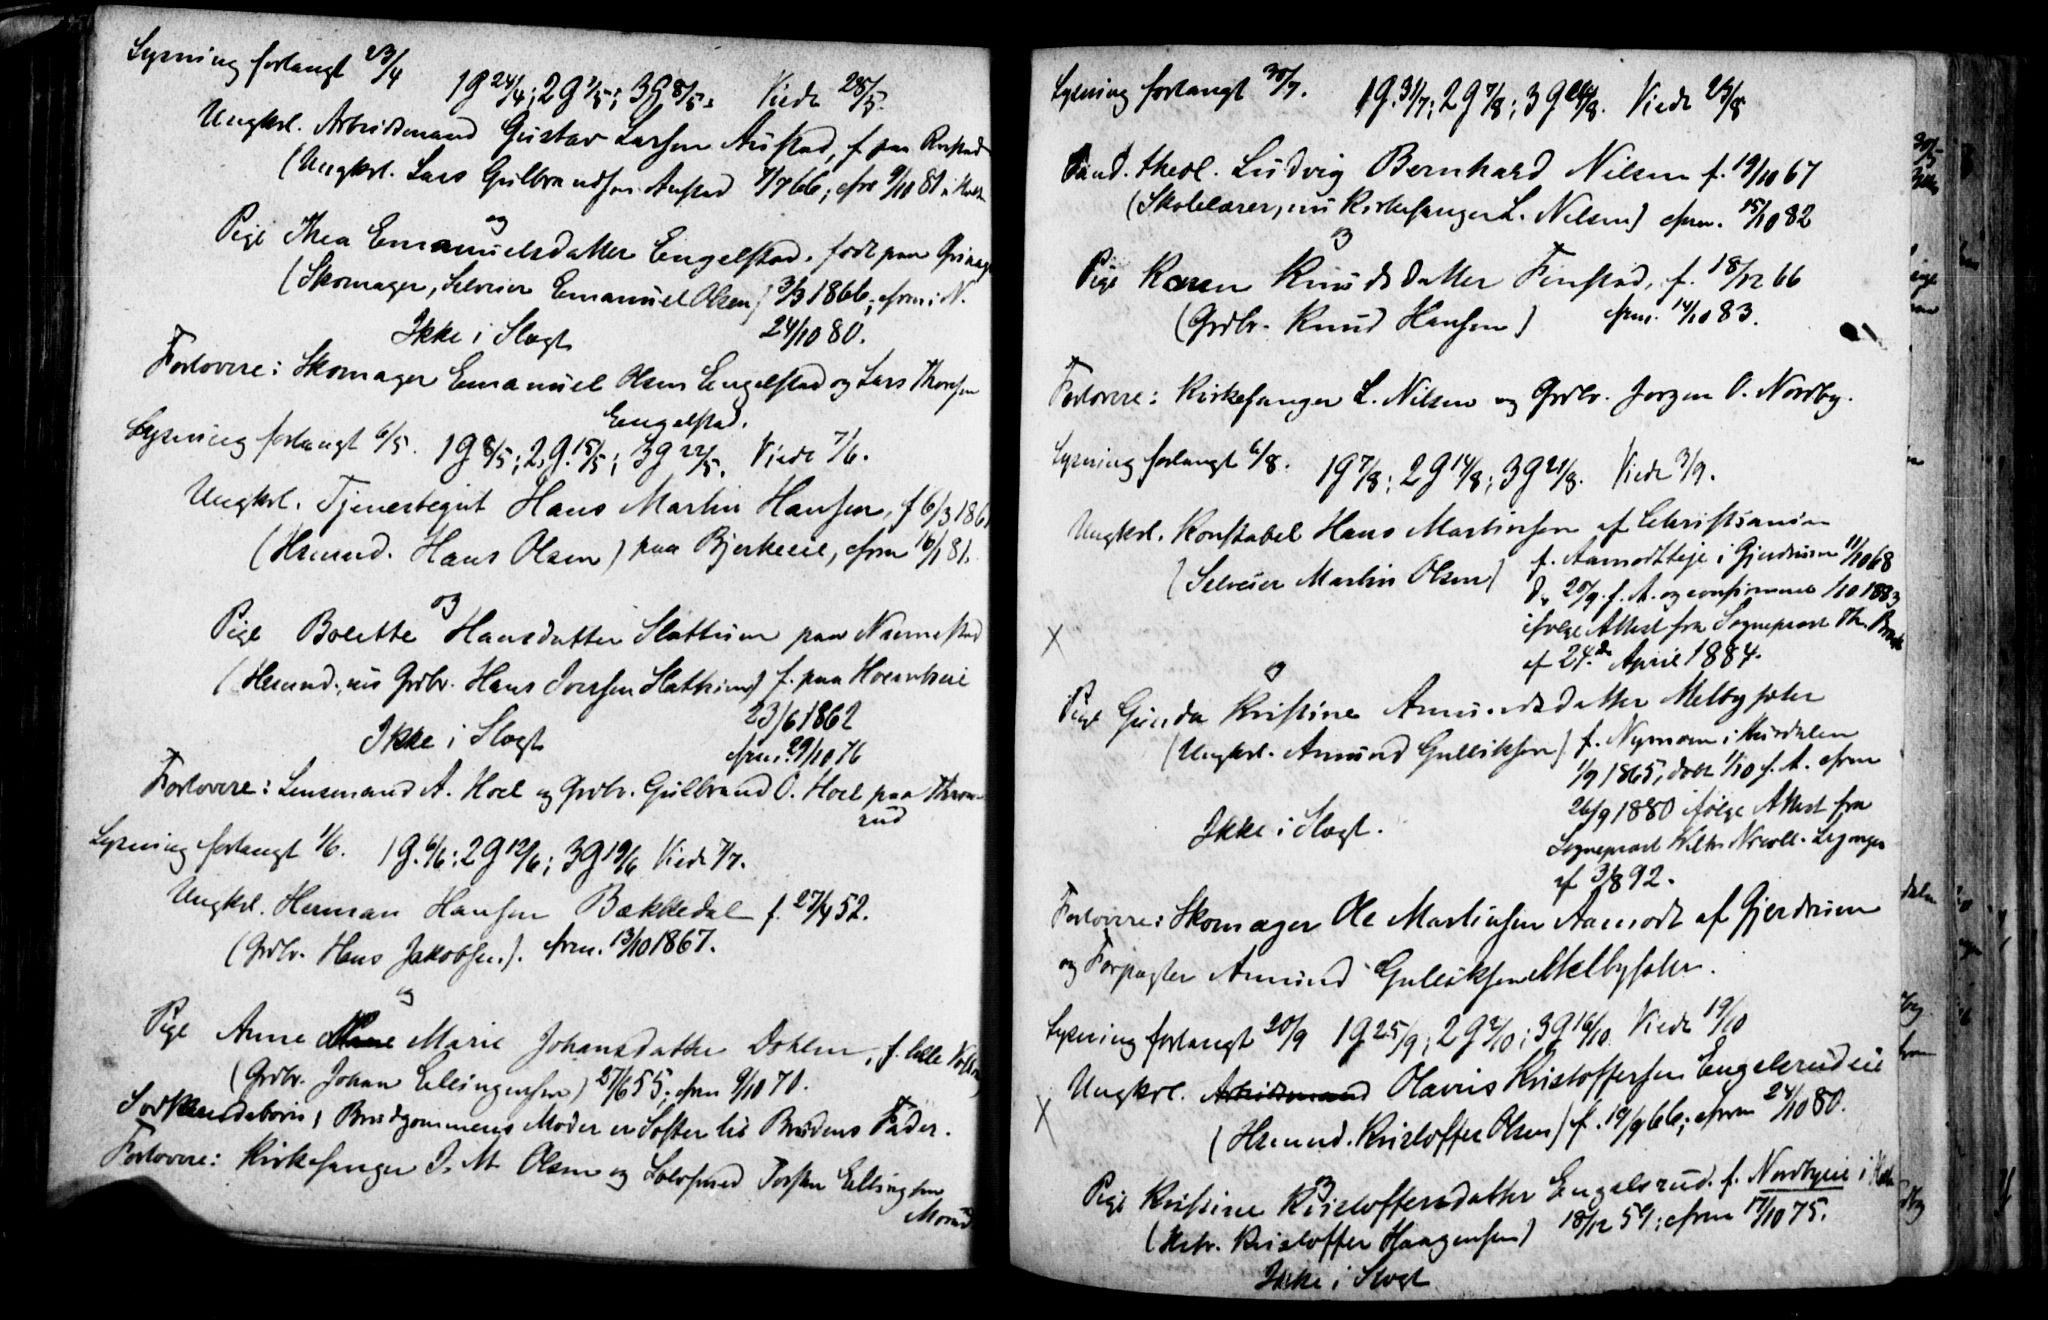 Lysning forlangt 23/4
1g 24/4; 2g 1/5; 3g 8/5. Viede 28/5.
Ungkrl. Arbeidsmand Gustav Larsen Austad, f paa
(Ungkrl. Lars Gulbrandsen Austad 7/7 66; cfrm 9/10 81 i
og
Pige Thea Emanuelsdatter Engelstad. født paa
(Skomager, Selveier Emanuel Olsen) 3/3 1866; cfrm i N.
Ikke i Slægt 24/10 80.
Forlovere: Skomager Emanuel Olsen Engelstad og Lars Thorsen
Engelstad.
Lysning forlangt 6/5. 1g 8/5; 2g. 15/5; 3g 22/5. Viede 7/6.
Ungkrl. Tjenestegut Hans Martin Hansen, f 6/3 186
(Husmd. Hans Olsen) paa Bjerkeeie, cfrm 16/1 81.
og
Pige Bolette Hansdatter Slattum paa Nannestad
(Husmd., nu Grdbr. Hans Iversen Slattum) f. paa
23/6 1862
Ikke i Slægt cfrm. 29/10 76
Forlovere: Lensmand A. Hoel og Grdbr. Gulbrand O. Hoel paa Throns
rud
Lysning forlangt 1/6. 1g. 6/6; 2g 12/6; 3g 19/6 Viede 7/7.
Ungkrl. Herman Hansen Bækkedal f. 27/4 52.
(Grdbr. Hans Jakobsen.). cfrm. 13/10 1867.
og
Pige Anne Marie Johansdatter Dohlen, f. lille
(Grdbr. Johan Ellingsen) 27/6 55; cfrm 9/10 70.
Sødskendebørn; Brudgommens Moder er Søster til Brudens Fader.
Forlovere: Kirkesanger J. M. Olsen og Torsten Ellingsen
Lysning forlangt 30/7. 1g. 31/7; 2g 7/8; 3g 14/8. Viede 25/8
Cand. theol. Ludvig Bernhard Nilsen f. 19/10 67
(Skolelærer, nu Kirkesanger L. Nilsen) cfrm. 15/10 82
og
Pige Karen Knudsdatter Finstad, f. 18/12 66
(Grdbr. Knud Hansen) cfrm. 14/10 83.
Forlovere: Kirkesanger L. Nilsen og Grdbr. Jørgen O. Nordby.
Lysning forlangt 6/8. 1g 7/8; 2g 14/8; 3g 21/8. Viede 3/9.
Ungkrl. Konstabel Hans Martinsen af Christiania
(Selveier Martin Olsen) f. Aamodtteje i Gjerdrum 11/10 68
D. 20/9 f. A. og confirmeret 1/10 1883
ifølge Attest fra Sognepræst Th.
af 24.de April 1884.
X
og
Pige Gunda Kristine Amundsdatter Melbysæter
(Ungkrl. Amund Gulliksen) f. Nymoen i Hurdalen
1/9 1865, døbt 1/10 f. A. cfrm
26/9 1880 ifølge Attest fra
Ikke i Slægt. Sognepræst
af 3/8 92.
Forlovere: Skomager Ole Martinsen Aamodt af Gjerdrum
og Forpagter Amund Gulliksen Melbysæter.
Lysning forlangt 20/9 1g 25/9; 2g 2/10; 3g 16/10 Viede 19/10
Ungkrl. Arbeidsmand Olavus Kristoffersen Engelsrudeie
X (Husmd. Kristoffer Olsen) f. 19/9 66; cfrm 24/10 80.
og
Pige Kristine Kristoffersdatter Engelsrud. f. Nordbyeie i
(Kristoffer Haagensen) 18/12 59; cfrm 17/10 75.
Ikke i Slægt